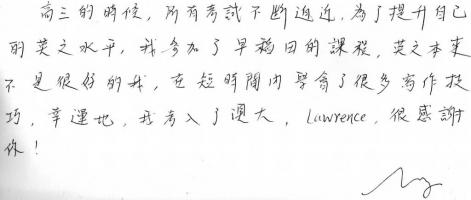 高三的時候，所有考試不斷迫近，為了提升自己
的英文水平，我參加了早稻田的課程，英文本來
不是很好的我，在短時間內學會了很多寫作技
巧，幸運地，我考入了澳大，Lawrence，很感謝
你！